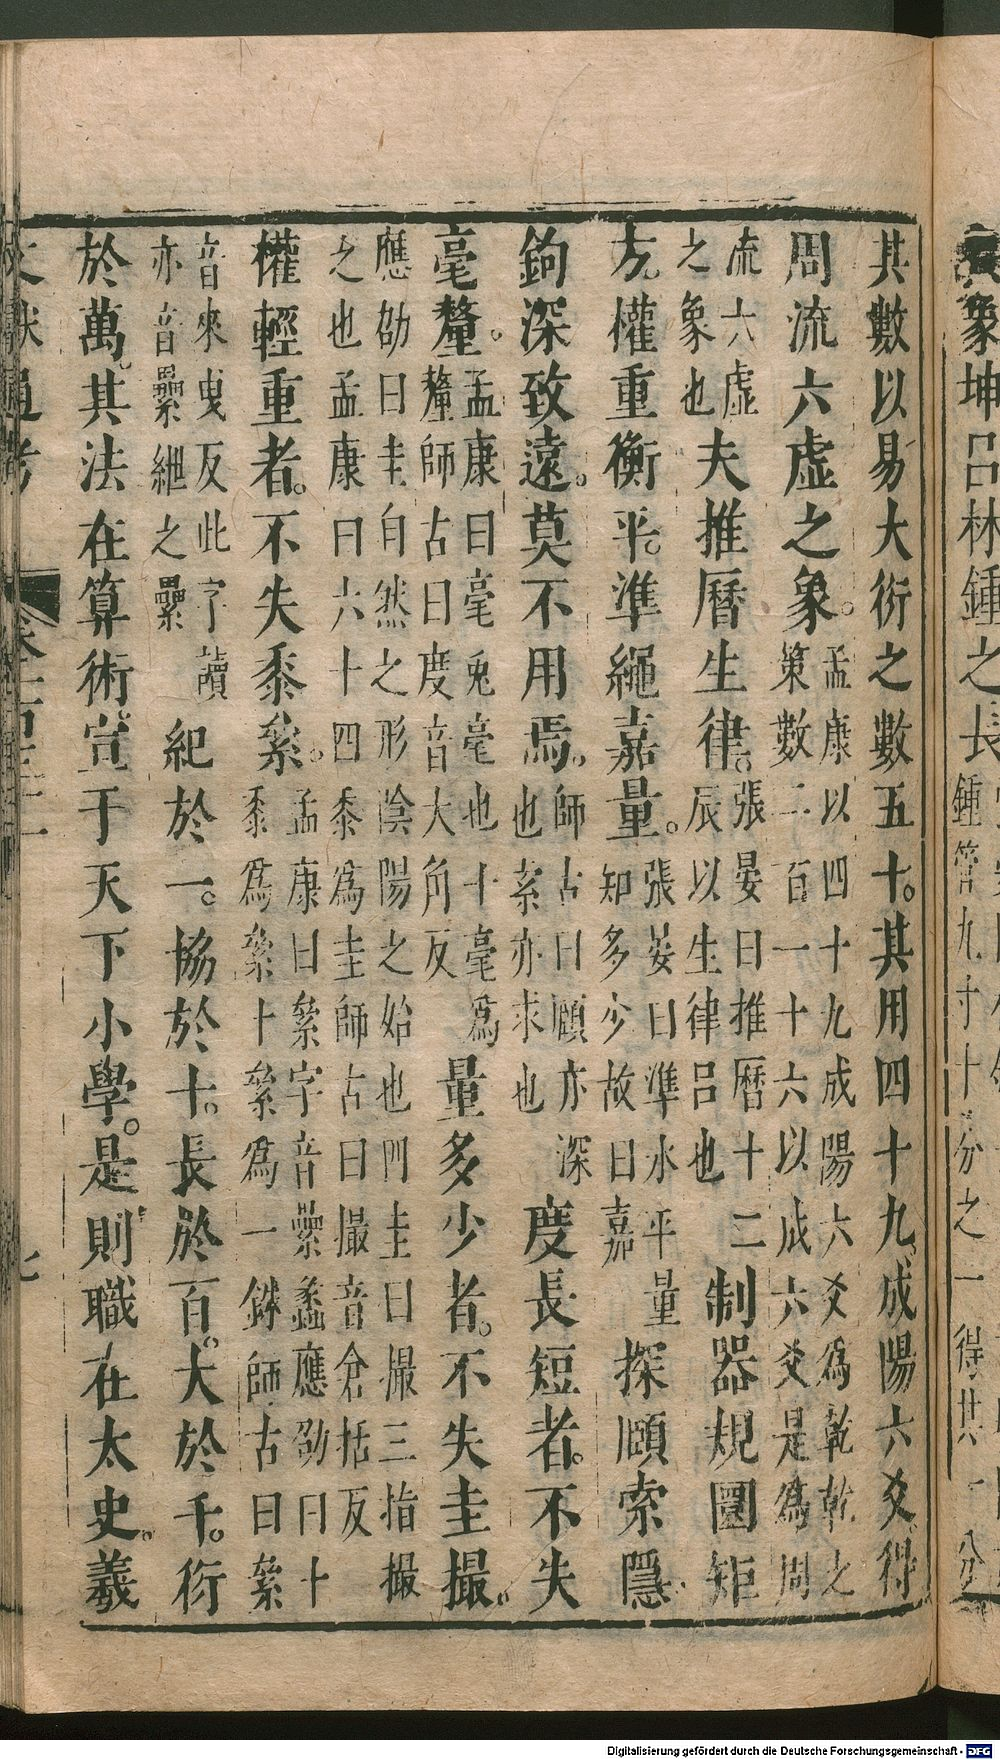 其數以易大衍之數五十。其用四十九、成陽六爻、得
周流六虛之象。孟康以四十九成陽六爻為乾乾之
策數二百一十六以成六爻是為周
流六虛
之象也夫推曆生律。張晏曰推曆十二
辰以生律呂也制器規圜矩
方。權重衡平。準繩嘉量。張晏曰準水平量
知多少故曰嘉探賾索隱。
鉤深致遠。莫不用焉。師古曰賾亦深
也索亦求也度長短者。不失
毫釐。孟康曰毫兔毫也十毫為
釐師古曰度音大角反量多少者。不失圭撮。
應劭曰圭自然之形陰陽之始也四圭曰撮三指撮
之也孟康曰六十四黍為圭師古曰撮音倉括反
權輕重者。不失黍絫。孟康曰絫字音藥蠡應劭曰十
黍為絫十絫為一銖師古曰絫
音來曳反此字讀
亦音纍紲之纍紀於一。協於十。長於百。大於千。衍
於萬。其法在算術宣于天下小學。是則職在太史。羲
象坤呂林鍾之長
鍾管九寸十分之一得其一分
Digitalisierung gefördert durch die Deutsche Forschungsgemeinschaft - DFG